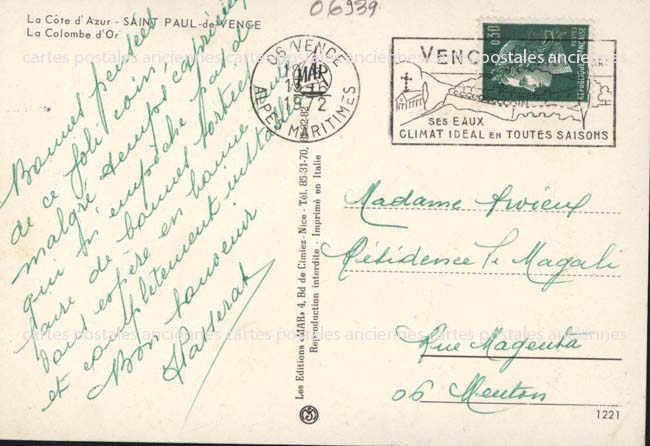 06939
La Côte d'Azur - SAINT PAUL-de-VENCE
La Colombe d'Or
Bonnes pensées
de ce joli coin
malgré temps capricieux
qui n' empêche pas de
faire de bonnes sorties
Vous espère en bonne santé
et complètement installée
Bon souvenir
06 VENCE
MAR
1972
ALPES MARITIMES
VENC
SES EAUX
CLIMAT IDEAL EN TOUTES SAISONS
0,30
REPUBLIQUE FRANÇAISE
POSTES
Les Editions «MAR» 4, Bd de Cimiez - Nice - Tél. 85-31-70,
Reproduction interdite - Imprimé en Italie
Madame
Résidence Magali
Rue Magenta
06 Menton
1221
cartes postales anciennes cartes postales anciennes cartes postales anciennes
cartes postales anciennes cartes postales anciennes cartes postales anciennes